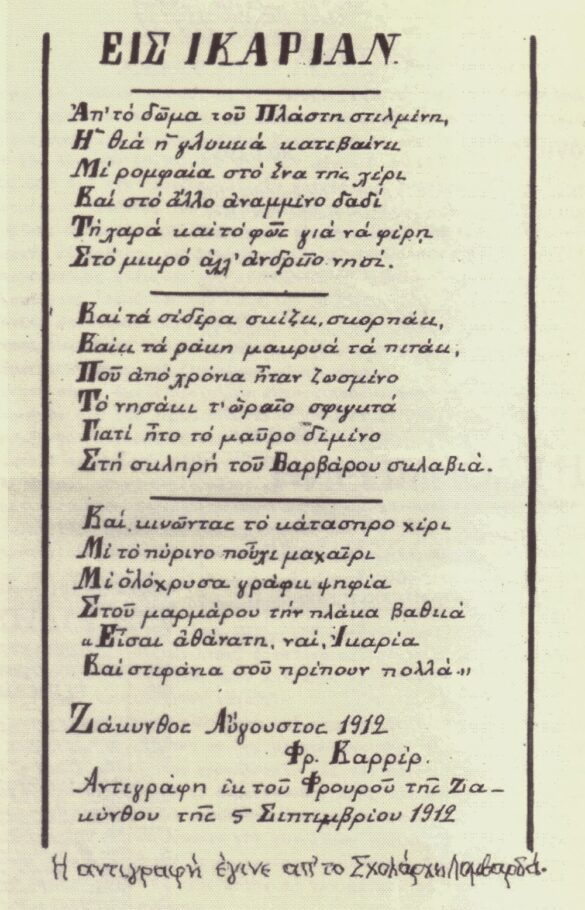 ΕΙΣ ΙΚΑΡΙΑΝ
Ἀπ' τό δῶμα τοῦ Πλάστη στελμένη,
Ἡ θεά ἡ γλυκκά κατεβαίνει
Μέ ρομφαία στό ἕνα της χέρι
Καί στό ἄλλο ἀναμμένο δαδί
Τή χαρά καί τό φῶς γιά νά φέρῃ
Στό μικρό ἀλλ' ἀνδρεῖο νησί.
Καί τά σίδερα σκίζει, σκορπάει,
Καί τά ράκη μακρυά τά πετάει,
Ποῦ ἀπό χρόνια ἦταν ζωσμένο
Τό νησάκι τ' ὡραῖο σφιγκτά
Γιατί ἦτο τό μαῦρο δεμένο
Στή σκληρή τοῦ Βαρβάρου σκλαβιά.
Καί, κινῶντας τό κάτασπρο χέρι
Μέ τό πύρινο ποὖχε μαχαῖρι
Μέ ὁλόχρυσα γράφει ψηφία
Στοῦ μαρμάρου τήν πλάκα βαθειά
«Εἶσαι ἀθάνατη, ναί, Ἰκαρία
Καί στεφάνια σοῦ πρέπουν πολλά»
Ζάκυνθος Αὔγουστος 1912
Φρ. Καρρέρ.
Αντιγράφη ἐκ τοῦ Φρουροῦ τῆς Ζα-
κύνθου τῆς 5 Σεπτεμβρίου 1912
Η αντιγραφή έγινε απ' το Σχολάρχη Λομβαρδά.